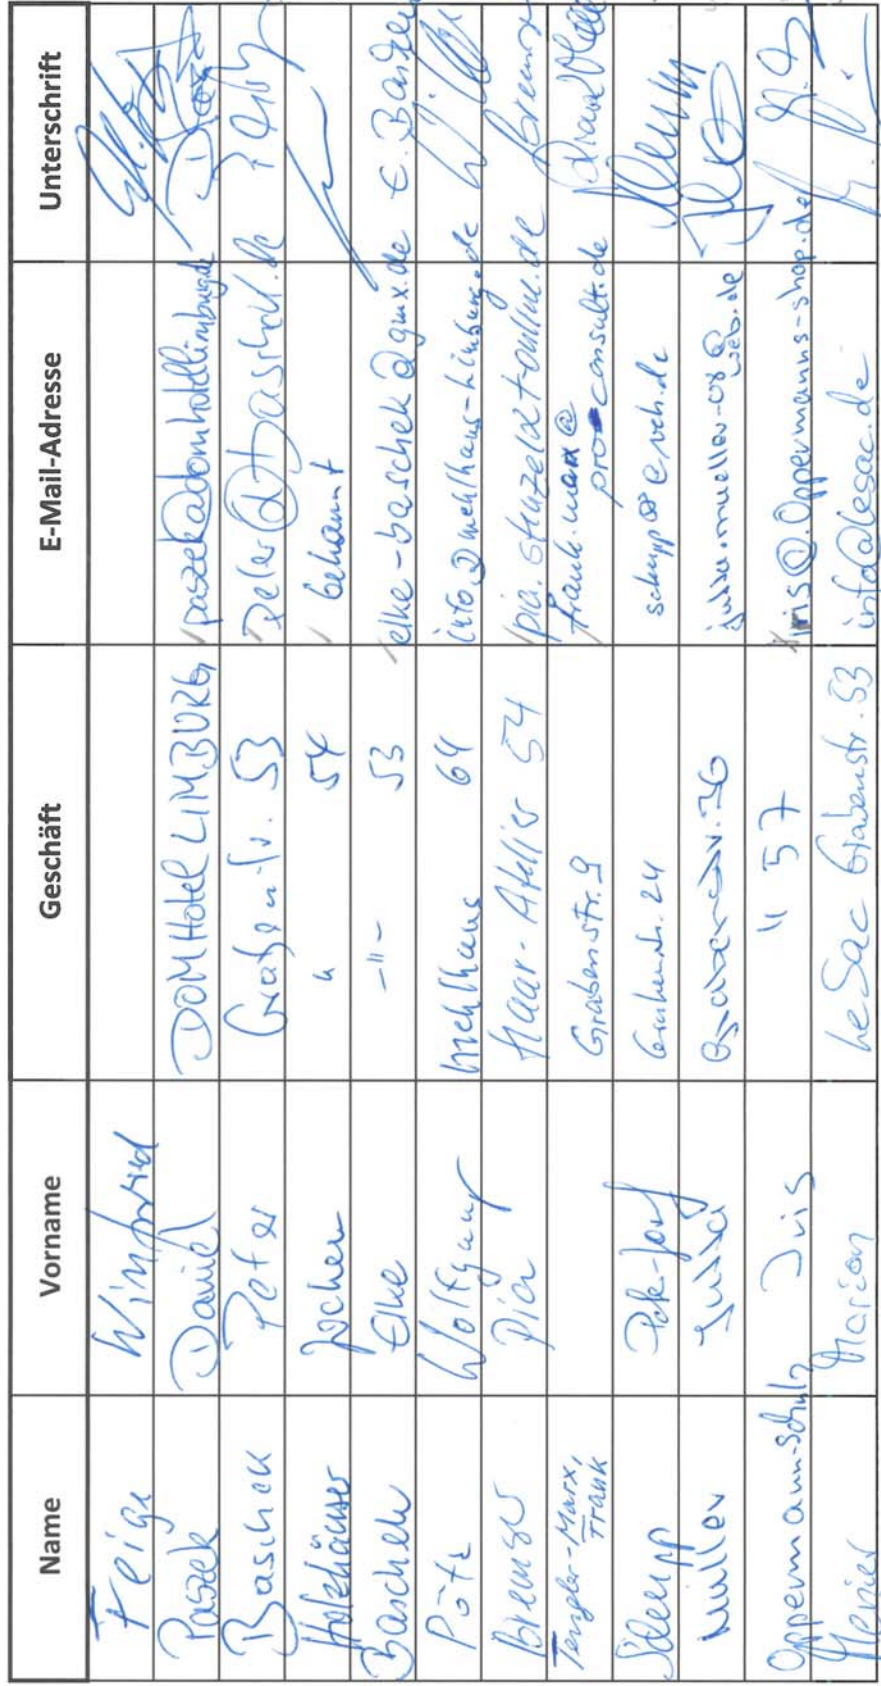 Name Vorname Geschäft E-Mail-Adresse Unterschrift
Feige Winfried
Paszek Daniel DOM Hotel LIMBURG paszek@domhotellimburg.de
Baschek Peter Grabenstr. 53 Peter@Baschek.de
Holzhäuser Jochen " 54 bekannt
Baschek Elke -"- 53 elke-baschek@gmx.de E. Baschek
Pötz Wolfgang Mehlhaus 64 info@mehlhaus-limburg.de
Bremser Pia Haar-Atelier 54 pia.stuzel@t-online.de Bremser
Tengler-Marx, Frank Grabenstr. 9 frank.marx@
pro-consult.de
Schupp Grabenstr. 24 schupp
Müller Julia Grabenstr. 36 julia.mueller-08@
web.de
Oppermann-Schulz Iris " 57 iris@oppermanns-shop.de
Marion Le Sac Grabenstr. 53 info@lesac.de